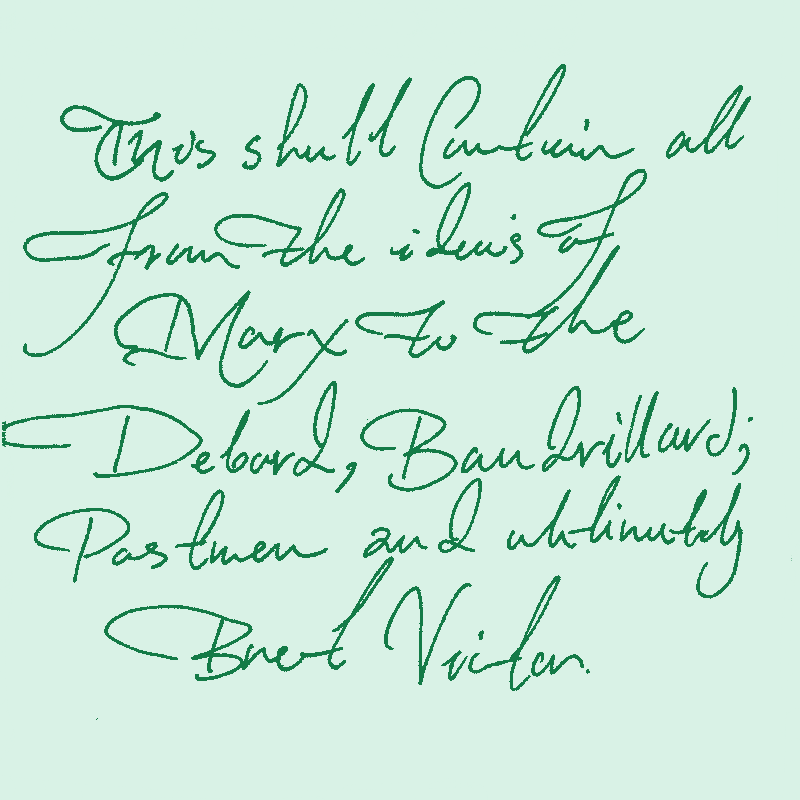 This shall Contain all
from the ideas of
Marx to the
Debord, Baudrillard;
Postman and ultimately
Bret Victor.